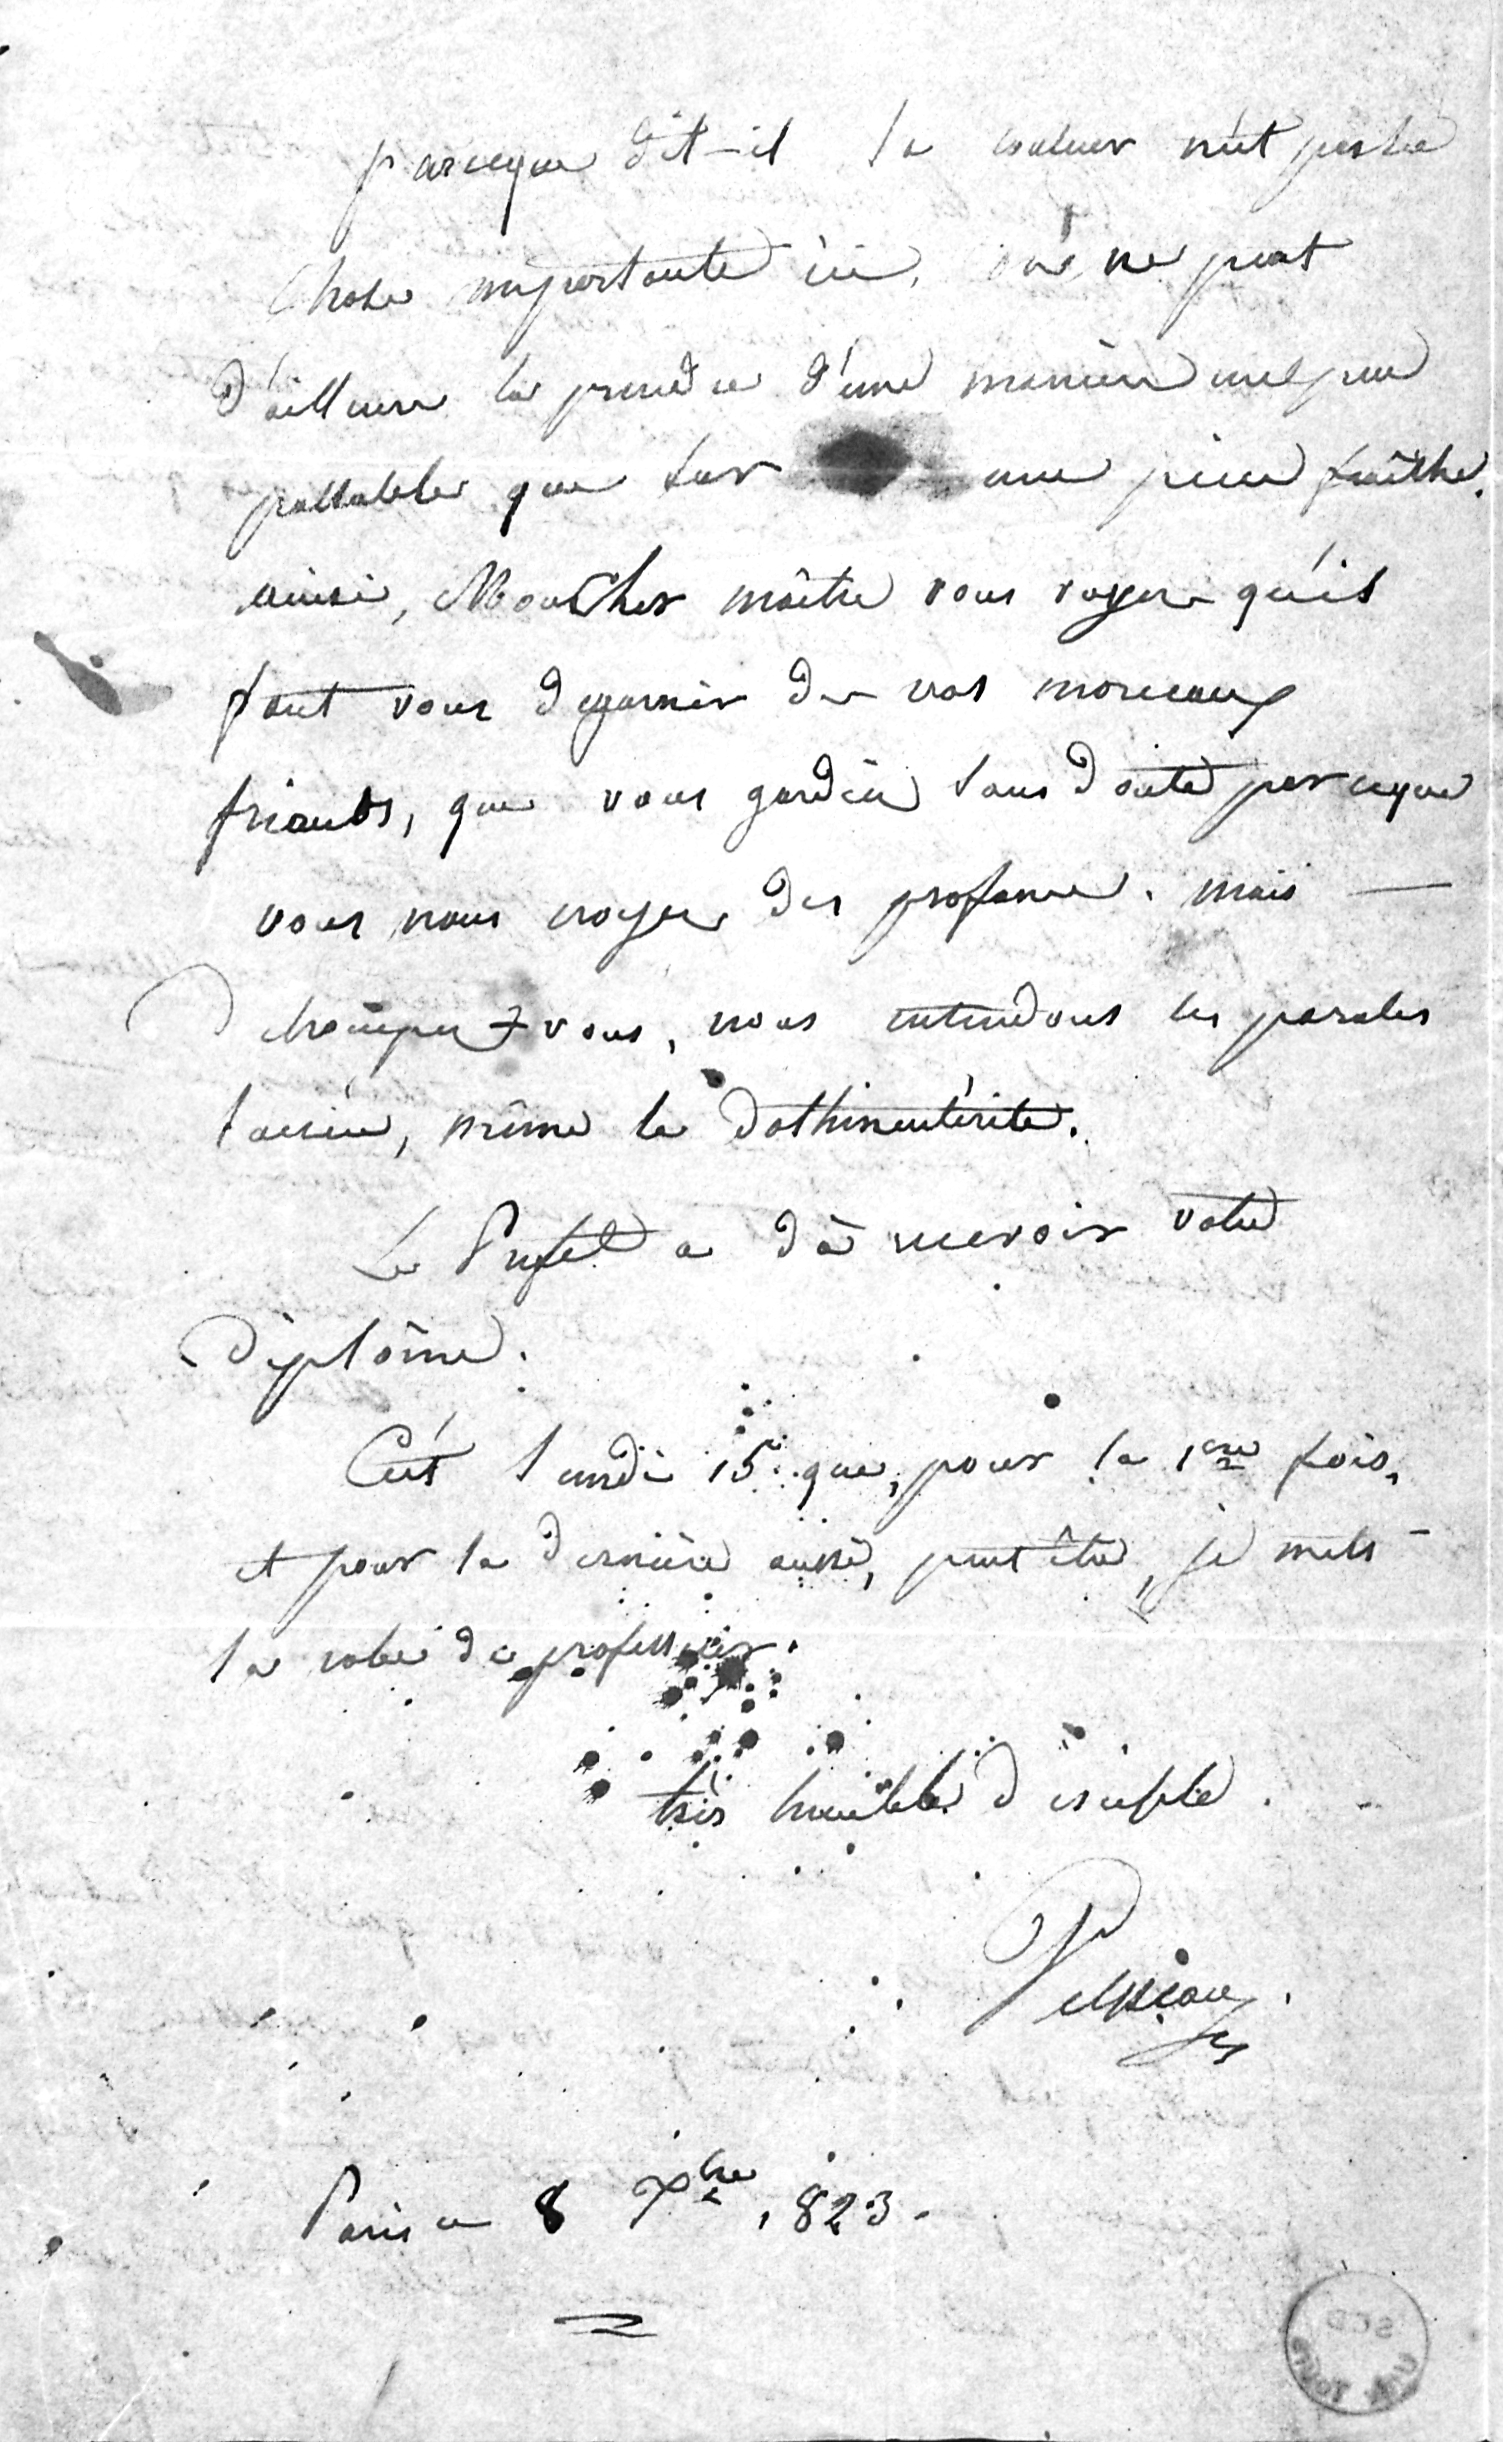 parceque dit-il la couleur n'est pas la
chose importante ici, on ne peut
d'ailleurs la prendre d'une maniere un peu
passable que sur une piece fraîche.
ainsi, Mon Cher maître vous voyez qu'il
faut vous degarnir de vos morceaux
friands, que vous gardiez sans doute parceque
vous nous croyez des profanes. mais
detrompez vous, nous entendons les paroles
sacrées, même la dothinentérite.
Le Prefet a dû recevoir votre
diplôme.
C'est lundi 15 que, pour la 1ere fois,
et pour la derniere aussi, peut être, je mets
la robe de professeur.
très humble disciple.
Velpeau
Paris ce 8 Xbre 1823.
Le
SCD